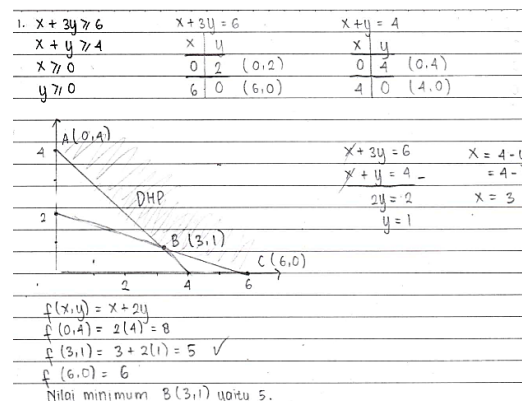 1. x + 3y ⩾ 6
x + y ⩾ 4
x ⩾ 0
y ⩾ 0
x + 3y = 6
x y
0 2 (0,2)
6 0 (6,0)
x + y = 4
x y
0 4 (0,4)
4 0 (4,0)
A (0,4)
4
2
DHP
B (3,1)
C (6,0)
2 4 6
x + 3y = 6
x + y = 4 -
2y = 2
y = 1
x = 4 -
= 4 -
x = 3
f(x,y) = x + 2y
f (0,4) = 2(4) = 8
f (3,1) = 3 + 2(1) = 5 ✓
f (6,0) = 6
Nilai minimum B (3,1) yaitu 5.